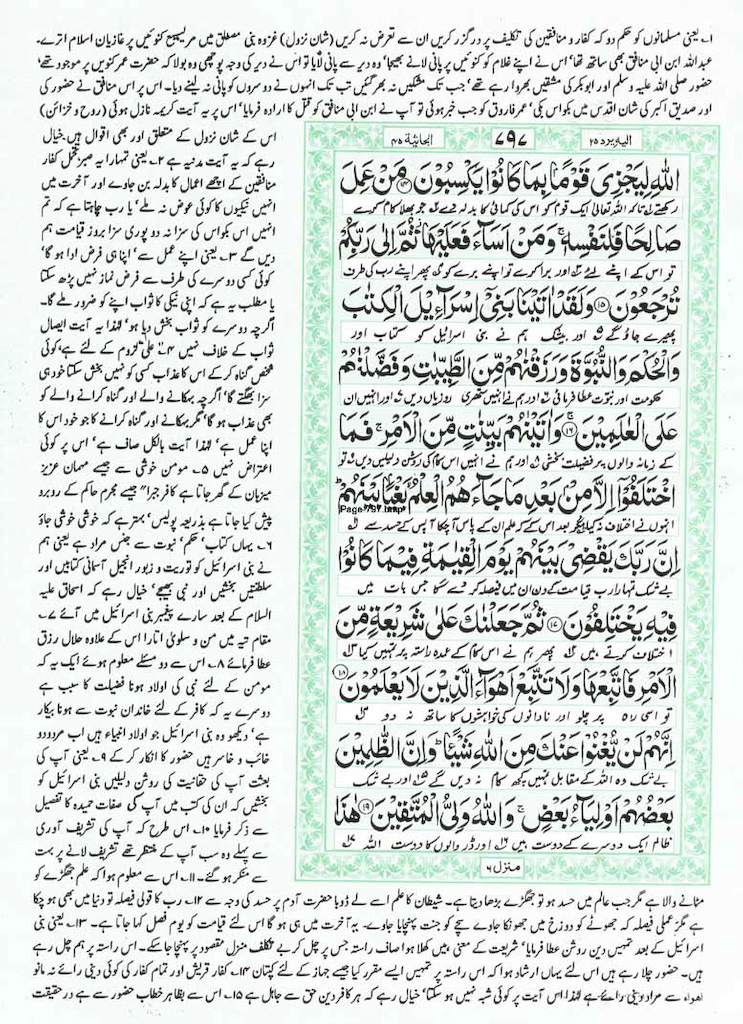 ۱۔ یعنی مسلمانوں کو حکم دو کہ کفار و منافقین کی تکلیف پر درگزر کریں ان سے تعرض نہ کریں (شان نزول) غزوہ بنی مصطلق میں مریسیع کنوئیں پر غازیان اسلام اترے۔
عبداللہ ابن ابی منافق بھی ساتھ تھا' اس نے اپنے غلام کو کنوئیں پر پانی لانے بھیجا' وہ دیر سے پانی لایا تو اس نے دیر کی وجہ پوچھی وہ بولا کہ حضرت عمر کنویں پر موجود تھے'
حضور صلی اللہ علیہ وسلم اور ابوبکر کی مشقیں بھروا رہے تھے' جب تک مشکیں نہ بھر گئیں تب تک انہوں نے دوسروں کو پانی نہ لینے دیا۔ اس پر اس منافق نے حضور کی
اور صدیق اکبر کی شان اقدس میں بکواس بکی' عمر فاروق کو جب خبر ہوئی تو آپ نے ابن ابی منافق کو قتل کا ارادہ فرمایا' اس پر یہ آیت کریمہ نازل ہوئی (روح و خزائن)
الیہ یردد ۲۵ ۷۹۷ الجاثیۃ ۴۵
اللّٰهِ لِيَجْزِيَ قَوْمًا بِمَا كَانُوْا يَكْسِبُوْنَ ۱۴ مَنْ عَمِلَ
رکھتے تاکہ اللہ تعالیٰ ایک قوم کو اس کی کمائی کا بدلہ دے جو بھلا کام کرے
صَالِحًا فَلِنَفْسِهٖ ۚ وَمَنْ اَسَآءَ فَعَلَيْهَا ۫ ثُمَّ اِلٰى رَبِّكُمْ
تو اس کے اپنے لئے اور برا کرے تو اپنے برے کو پھر اپنے رب کی طرف
تُرْجَعُوْنَ ۱۵ وَلَقَدْ اٰتَيْنَا بَنِيْٓ اِسْرَآءِيْلَ الْكِتٰبَ
پھیرے جاؤ گے اور بیشک ہم نے بنی اسرائیل کو کتاب اور
وَالْحُكْمَ وَالنُّبُوَّةَ وَرَزَقْنٰهُمْ مِّنَ الطَّيِّبٰتِ وَفَضَّلْنٰهُمْ
حکومت اور نبوت عطا فرمائی اور ہم نے انہیں ستھری روزیاں دیں اور انہیں ان
عَلَى الْعٰلَمِيْنَ ۱۶ وَاٰتَيْنٰهُمْ بَيِّنٰتٍ مِّنَ الْاَمْرِ ۚ فَمَا
کے زمانہ والوں پر فضیلت بخشی اور ہم نے انہیں اس کام کی روشن دلیلیں دیں تو
اخْتَلَفُوْٓا اِلَّا مِنْۢ بَعْدِ مَا جَآءَهُمُ الْعِلْمُ ۙ بَغْيًۢا بَيْنَهُمْ ؕ
Page 797.bmp
انہوں نے اختلاف نہ کیا مگر بعد اس کے کہ علم ان کے پاس آچکا آپس کے حسد سے
اِنَّ رَبَّكَ يَقْضِيْ بَيْنَهُمْ يَوْمَ الْقِيٰمَةِ فِيْمَا كَانُوْا
بے شک تمہارا رب قیامت کے دن ان میں فیصلہ کر دے گا جس بات میں
فِيْهِ يَخْتَلِفُوْنَ ۱۷ ثُمَّ جَعَلْنٰكَ عَلٰى شَرِيْعَةٍ مِّنَ
اختلاف کرتے ہیں پھر ہم نے اس کام کے عمدہ راستہ پر تمہیں کیا
الْاَمْرِ فَاتَّبِعْهَا وَلَا تَتَّبِعْ اَهْوَآءَ الَّذِيْنَ لَا يَعْلَمُوْنَ ۱۸
تو اسی راہ پر چلو اور نادانوں کی خواہشوں کا ساتھ نہ دو
اِنَّهُمْ لَنْ يُّغْنُوْا عَنْكَ مِنَ اللّٰهِ شَيْـًٔا ؕ وَاِنَّ الظّٰلِمِيْنَ
بے شک وہ اللہ کے مقابل تمہیں کچھ کام نہ دیں گے اور بے شک
بَعْضُهُمْ اَوْلِيَآءُ بَعْضٍ ۚ وَاللّٰهُ وَلِيُّ الْمُتَّقِيْنَ ۱۹ هٰذَا
ظالم ایک دوسرے کے دوست ہیں اور ڈر والوں کا دوست اللہ
منزل ۶
اس کے شان نزول کے متعلق اور بھی اقوال ہیں خیال
رہے کہ یہ آیت مدنیہ ہے ۲۔ یعنی تمہارا یہ صبر و تحمل کفار
منافقین کے اچھے اعمال کا بدلہ بن جاوے اور آخرت میں
انہیں نیکیوں کا کوئی عوض نہ ملے' یا رب چاہتا ہے کہ تم
انہیں اس بکواس کی سزا نہ دو پوری سزا بروز قیامت ہم
دیں گے ۳۔ یعنی اپنے عمل سے' اپنا ہی فرض ادا ہو گا'
کوئی کسی دوسرے کی طرف سے فرض نماز نہیں پڑھ سکتا
یا مطلب یہ ہے کہ اپنی نیکی کا ثواب اپنے کو ضرور ملے گا۔
اگرچہ دوسرے کو ثواب بخش دیا ہو' لہٰذا یہ آیت ایصال
ثواب کے خلاف نہیں ۴۔ علیٰ لزوم کے لئے ہے' کوئی
شخص گناہ کر کے اس کا عذاب کسی کو نہیں بخش سکتا خود ہی
سزا بھگتے گا' اگرچہ بہکانے والے اور گناہ کرانے والے کو
بھی عذاب ہو گا' مگر بہکانے اور گناہ کرانے کا جو خود اس کا
اپنا عمل ہے' لہٰذا آیت بالکل صاف ہے' اس پر کوئی
اعتراض نہیں ۵۔ مومن خوشی سے جیسے مہمان عزیز
میزبان کے گھر جاتا ہے کافر جبرا" جیسے مجرم حاکم کے روبرو
پیش کیا جاتا ہے بذریعہ پولیس' بہتر ہے کہ خوشی خوشی جاؤ
۶۔ یہاں کتاب' حکم' نبوت سے جنس مراد ہے یعنی ہم
نے بنی اسرائیل کو توریت و زبور انجیل آسمانی کتابیں اور
سلطنتیں بخشیں اور نبی بھیجے' خیال رہے کہ اسحاق علیہ
السلام کے بعد سارے پیغمبر بنی اسرائیل میں آئے ۷۔
مقام تیہ میں من و سلویٰ اتارا اس کے علاوہ حلال رزق
عطا فرمائے ۸۔ اس سے دو مسئلے معلوم ہوئے ایک یہ کہ
مومن کے لئے نبی کی اولاد ہونا فضیلت کا سبب ہے
دوسرے یہ کہ کافر کے لئے خاندان نبوت سے ہونا بیکار
ہے' دیکھو وہ بنی اسرائیل جو اولاد انبیاء ہیں اب مردود و
خائب و خاسر ہیں حضور کا انکار کر کے ۹۔ یعنی آپ کی
بعثت آپ کی حقانیت کی روشن دلیلیں بنی اسرائیل کو
بخشیں کہ ان کی کتب میں آپ کی صفات حمیدہ کا تفصیل
سے ذکر فرمایا ۱۰۔ اس طرح کہ آپ کی تشریف آوری
سے پہلے وہ سب آپ کے منتظر تھے تشریف لانے پر بہت
سے منکر ہو گئے۔ ۱۱۔ اس سے معلوم ہوا کہ علم جھگڑے کو
مٹانے والا ہے مگر جب عالم میں حسد ہو تو جھگڑے بڑھا دیتا ہے۔ شیطان کا علم اسے لے ڈوبا حضرت آدم پر حسد کی وجہ سے ۱۲۔ رب کا قولی فیصلہ تو دنیا میں بھی ہو چکا
ہے مگر عملی فیصلہ کہ جھوٹے کو دوزخ میں جھونکا جاوے سچے کو جنت پہنچایا جاوے۔ یہ آخرت میں ہی ہو گا اس لئے قیامت کو یوم فصل کہا جاتا ہے۔ ۱۳۔ یعنی بنی
اسرائیل کے بعد تمہیں دین روشن عطا فرمایا' شریعت کے معنی ہیں کھلا ہوا صاف راستہ جس پر چل کر بے تکلف منزل مقصود پر پہنچا جا سکے۔ اس راستہ پر ہم چل رہے
ہیں۔ حضور چلا رہے ہیں اس لئے یہاں ارشاد ہوا کہ اس راستہ پر تمہیں ایسے مقرر کیا جیسے جہاز کے لئے کپتان ۱۴۔ کفار قریش اور تمام کفار کی کوئی دینی رائے نہ مانو
اھواء سے مراد دینی رائے ہے لہٰذا اس آیت پر کوئی شبہ نہیں ہو سکتا' خیال رہے کہ ہر کافر دین حق سے جاہل ہے ۱۵۔ اس سے بظاہر خطاب حضور سے ہے در حقیقت